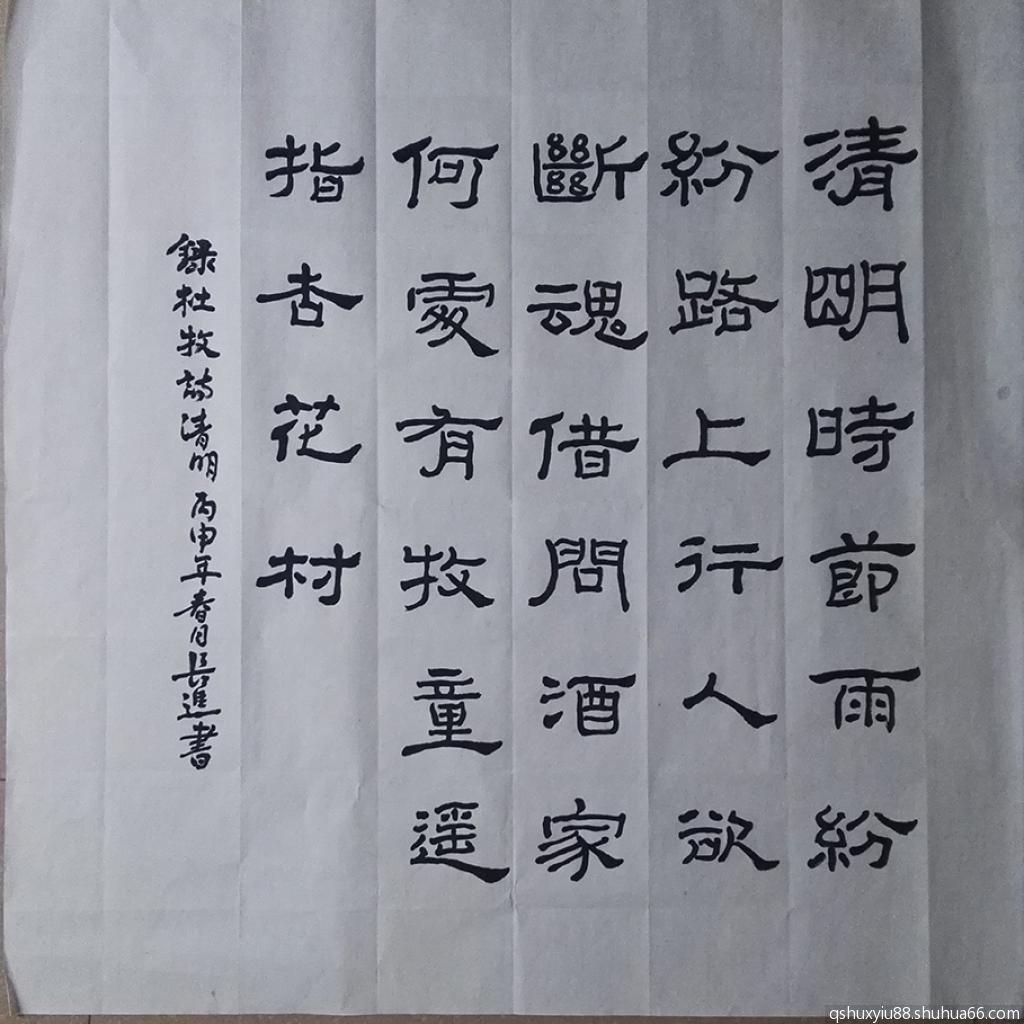 清明時節雨紛
紛路上行人欲
斷魂借問酒家
何處有牧童遥
指杏花村
錄杜牧詩清明丙申年春月長進書
qshuxyiu88.shuhua66.com